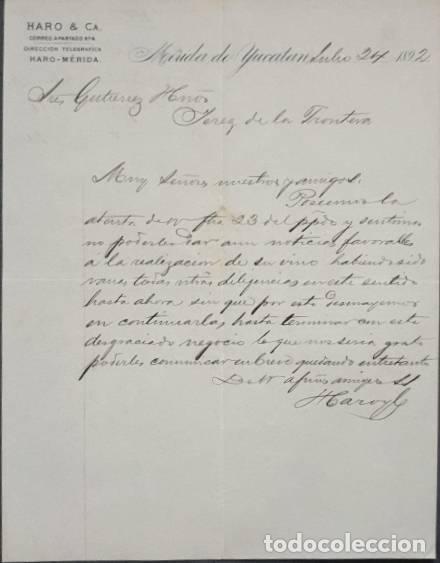 HARO & CA.
CORREO APARTADO Nº 4
DIRECCIÓN TELEGRAFICA
HARO-MÉRIDA.
Mérida de Yucatan Julio 24 1892
Sres Gutierrez Hnos
Jerez de la Frontera
Muy Señores nuestros y amigos:
Poseemos la
atenta de Vs fha 23 del ppdo y sentimos
no poderles dar aun noticias favorables
a la realizacion de su vino habiendo sido
vanas todas ntras diligencias en este sentido
hasta ahora sin que por esto desmayemos
en continuarlas hasta terminar con este
desgraciado negocio lo que nos seria grato
poderles comunicar en breve quedando entretanto
De Vs afmos amigos SS
Haro y Ca
todocoleccion.net